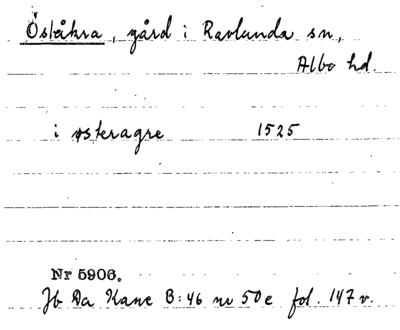 Öståkra, gård i Ravlunda sn,
Albo hd.
i østeragre 1525
Nr 5906.
Jb Da Kanc B:46 nr 50e fol. 147 v.